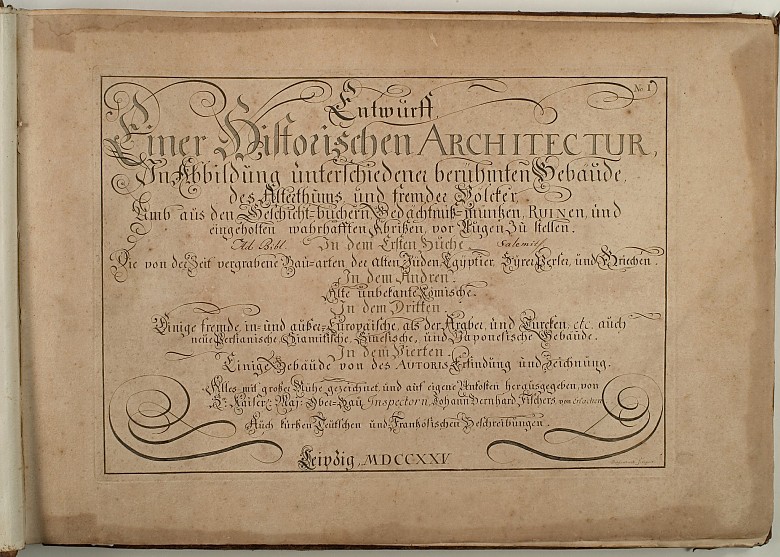 No. I
Entwurff
Einer Historischen ARCHITECTUR,
In Abbildung unterschiedener berühmten Gebäude,
des Alterthums und fremder Völcker,
Umb aus den Geschicht-büchern, Gedächtnüß-müntzen, RUINEN, und
eingeholten wahrhafften Abrißen, vor Augen zu stellen.
Ad. Bibl. In dem Ersten Buche.
Die von der Zeit vergrabene Bau-arten der Alten Jüden, Egyptier, Syrer, Perser, und Griechen.
In dem Andren.
Alte unbekante Römische.
In dem Dritten.
Einige fremde, in- und außer-Europäische, als der Araber, und Türcken, etc. auch
neue Persianische, Siamitische, Sinesische, und Japonesische Gebäude.
In dem Vierten.
Einige Gebäude von des AUTORIS Erfindung und Zeichnung.
Alles mit großer Mühe gezeichnet, und auf eigene Unkosten herausgegeben, von
Kaiserl: Maj: Ober-Bau Inspectorn, Johann Bernhard Fischers, von Erlachen
Auch kurtzen Teutschen und Frantzösischen Beschreibungen.
Leipzig, MDCCXXV